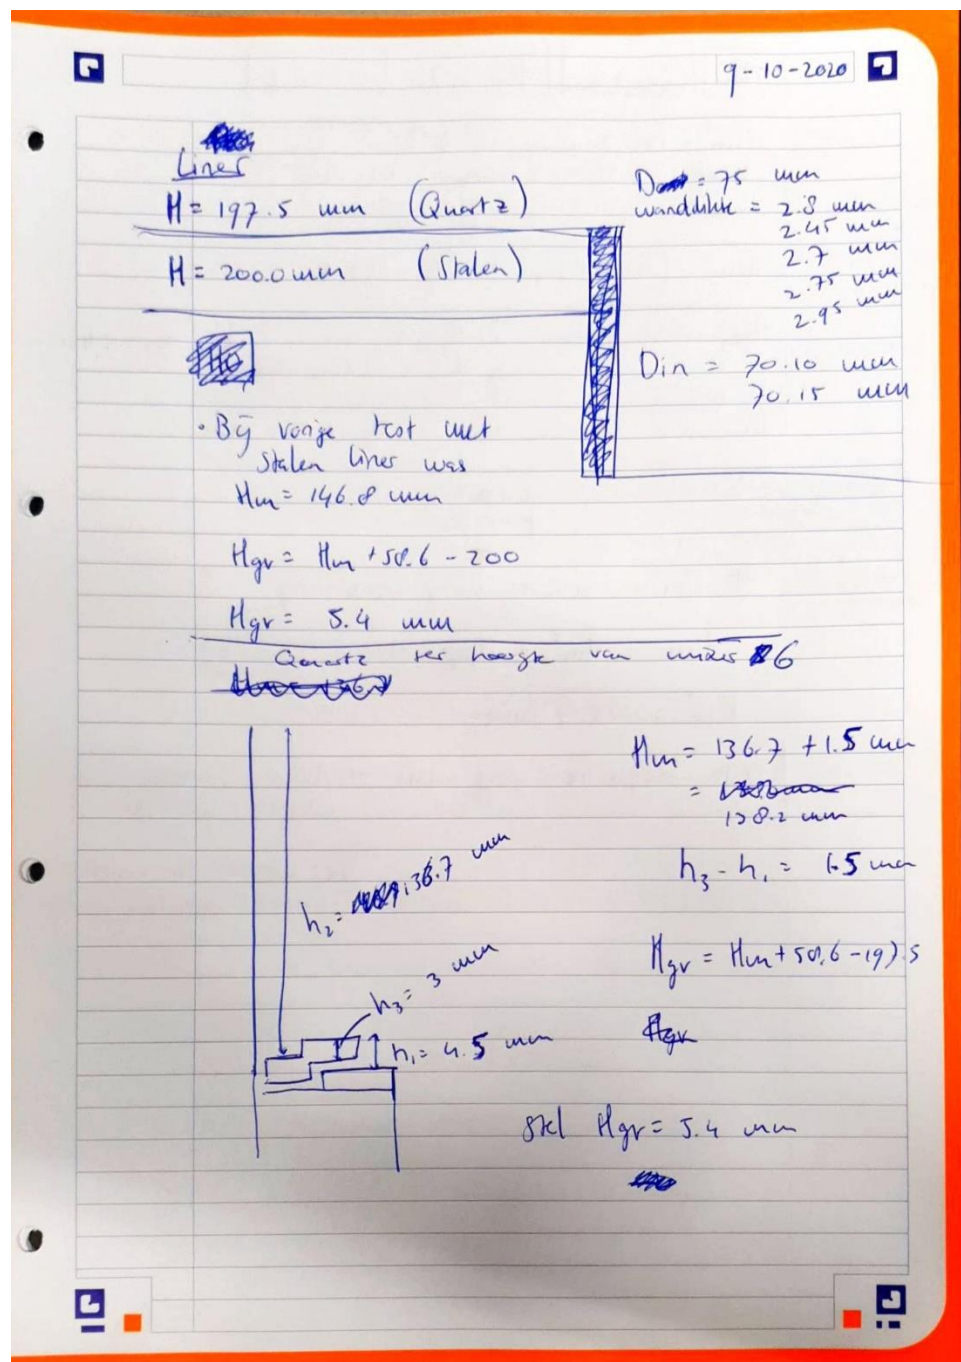 9-10-2020
Liner
H = 197.5 mm (Quartz)
H = 200.0 mm (Stalen)
D = 75 mm
wanddikte = 2.8 mm
2.45 mm
2.7 mm
2.75 mm
2.95 mm
Din = 70.10 mm
70.15 mm
• Bij vorige test met
Stalen liner was
Hm = 146.8 mm
Hgv = Hm + 58.6 - 200
Hgv = 5.4 mm
Quartz ter hoogte van mixer 6
Hm = 136.7 + 1.5 mm
=
138.2 mm
h3 - h1 = 1.5 mm
Hgv = Hm + 58.6 - 197.5
h2 = 136.7 mm
h3 = 3 mm
h1 = 4.5 mm
stel Hgv = 5.4 mm